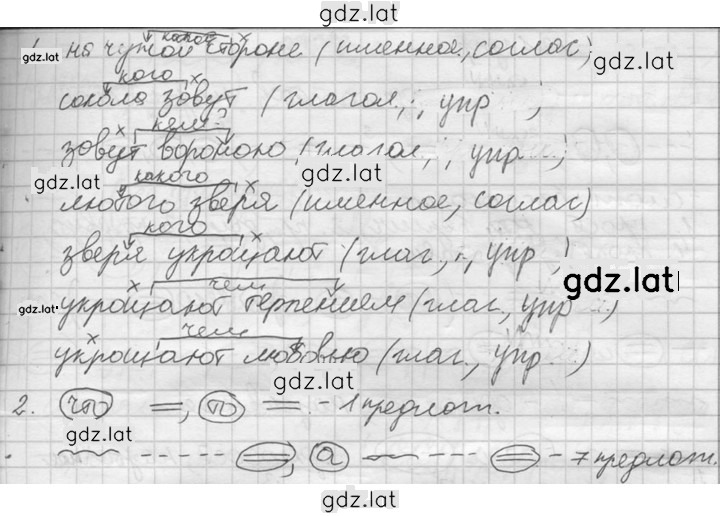 gdz.lat
какой
1. на чужой стороне (именное, соглас)
gdz.lat gdz.lat
кого
сокола зовут (глагол, упр)
кем?
зовут вороною (глагол, упр)
gdz.lat gdz.lat
какого
любого зверя (именное, соглас)
кого
зверя укрощают (глаг, упр)
gdz.lat
чем
gdz.lat укрощают терпением (глаг, упр)
чем
укрощают любовью (глаг, упр)
gdz.lat
2. что =, то = - 1 предлож.
gdz.lat
=, а = - 7 предлож.
gdz.lat